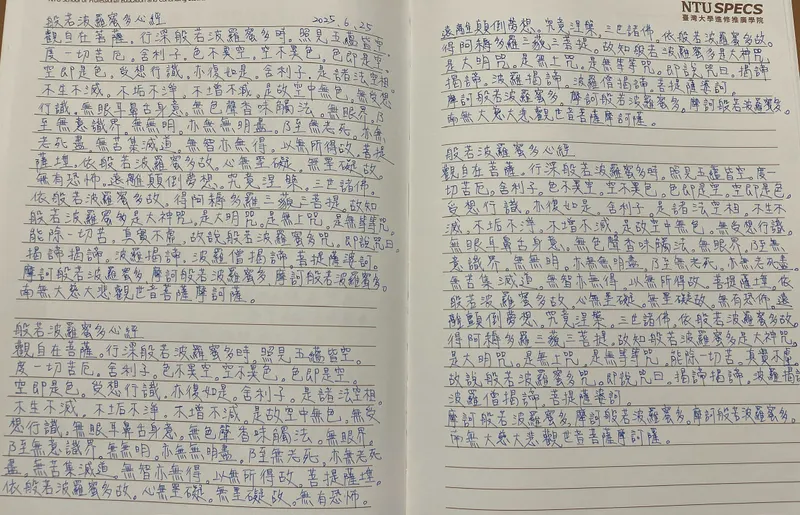 般若波羅蜜多心經 2025.6.25
觀自在菩薩。行深般若波羅蜜多時。照見五蘊皆空
度一切苦厄。舍利子。色不異空。空不異色。色即是空。
空即是色。受想行識。亦復如是。舍利子。是諸法空相。
不生不滅。不垢不淨。不增不減。是故空中無色。無受想
行識。無眼耳鼻舌身意。無色聲香味觸法。無眼界。乃
至無意識界。無無明。亦無無明盡。乃至無老死。亦無
老死盡。無苦集滅道。無智亦無得。以無所得故。菩提
薩埵。依般若波羅蜜多故。心無罣礙。無罣礙故。
無有恐怖。遠離顛倒夢想。究竟涅槃。三世諸佛。
依般若波羅蜜多故。得阿耨多羅三藐三菩提。故知
般若波羅蜜多是大神咒。是大明咒。是無上咒。是無等等咒。
能除一切苦。真實不虛。故說般若波羅蜜多咒。即說咒曰。
揭諦揭諦。波羅揭諦。波羅僧揭諦。菩提薩婆訶。
摩訶般若波羅蜜多。摩訶般若波羅蜜多。摩訶般若波羅蜜多。
南無大慈大悲觀世音菩薩摩訶薩。
般若波羅蜜多心經
觀自在菩薩。行深般若波羅蜜多時。照見五蘊皆空。
度一切苦厄。舍利子。色不異空。空不異色。色即是空。
空即是色。受想行識。亦復如是。舍利子。是諸法空相。
不生不滅。不垢不淨。不增不減。是故空中無色。無受
想行識。無眼耳鼻舌身意。無色聲香味觸法。無眼界。
乃至無意識界。無無明。亦無無明盡。乃至無老死。亦無老死
盡。無苦集滅道。無智亦無得。以無所得故。菩提薩埵。
依般若波羅蜜多故。心無罣礙。無罣礙故。無有恐怖。
NTU SPECS
臺灣大學進修推廣學院
遠離顛倒夢想。究竟涅槃。三世諸佛。依般若波羅蜜多故。
得阿耨多羅三藐三菩提。故知般若波羅蜜多是大神咒。
是大明咒。是無上咒。是無等等咒。即說咒曰。揭諦
揭諦。波羅揭諦。波羅僧揭諦。菩提薩婆訶。
摩訶般若波羅蜜多。摩訶般若波羅蜜多。摩訶般若波羅蜜多。
南無大慈大悲觀世音菩薩摩訶薩。
般若波羅蜜多心經
觀自在菩薩。行深般若波羅蜜多時。照見五蘊皆空。度一
切苦厄。舍利子。色不異空。空不異色。色即是空。空即是色。
受想行識。亦復如是。舍利子。是諸法空相。不生不
滅。不垢不淨。不增不減。是故空中無色。無受想行識。
無眼耳鼻舌身意。無色聲香味觸法。無眼界。乃至無
意識界。無無明。亦無無明盡。乃至無老死。亦無老死盡。
無苦集滅道。無智亦無得。以無所得故。菩提薩埵。依
般若波羅蜜多故。心無罣礙。無罣礙故。無有恐怖。遠
離顛倒夢想。究竟涅槃。三世諸佛。依般若波羅蜜多故。
得阿耨多羅三藐三菩提。故知般若波羅蜜多是大神咒。
是大明咒。是無上咒。是無等等咒。能除一切苦。真實不虛
故說般若波羅蜜多咒。即說咒曰。揭諦揭諦。波羅揭諦
波羅僧揭諦。菩提薩婆訶。
摩訶般若波羅蜜多。摩訶般若波羅蜜多。摩訶般若波羅蜜多。
南無大慈大悲觀世音菩薩摩訶薩。